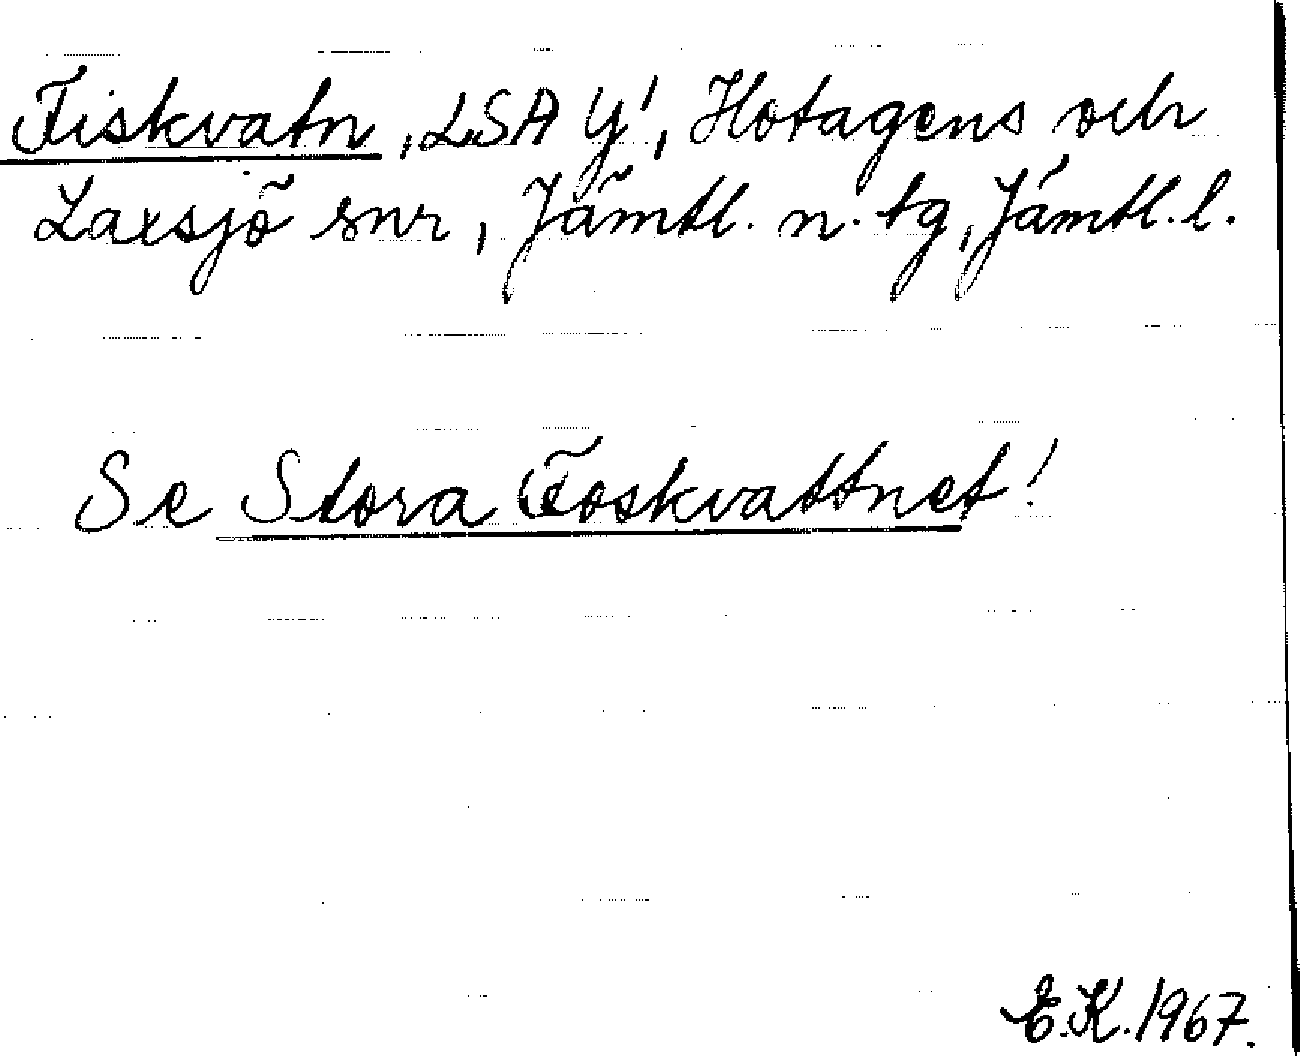 Fiskvatn, LSA Y', Hotagens och
Laxsjö snr, Jämtl. n. tg, Jämtl. l.
Se Stora Foskvattnet!
E.K. 1967.